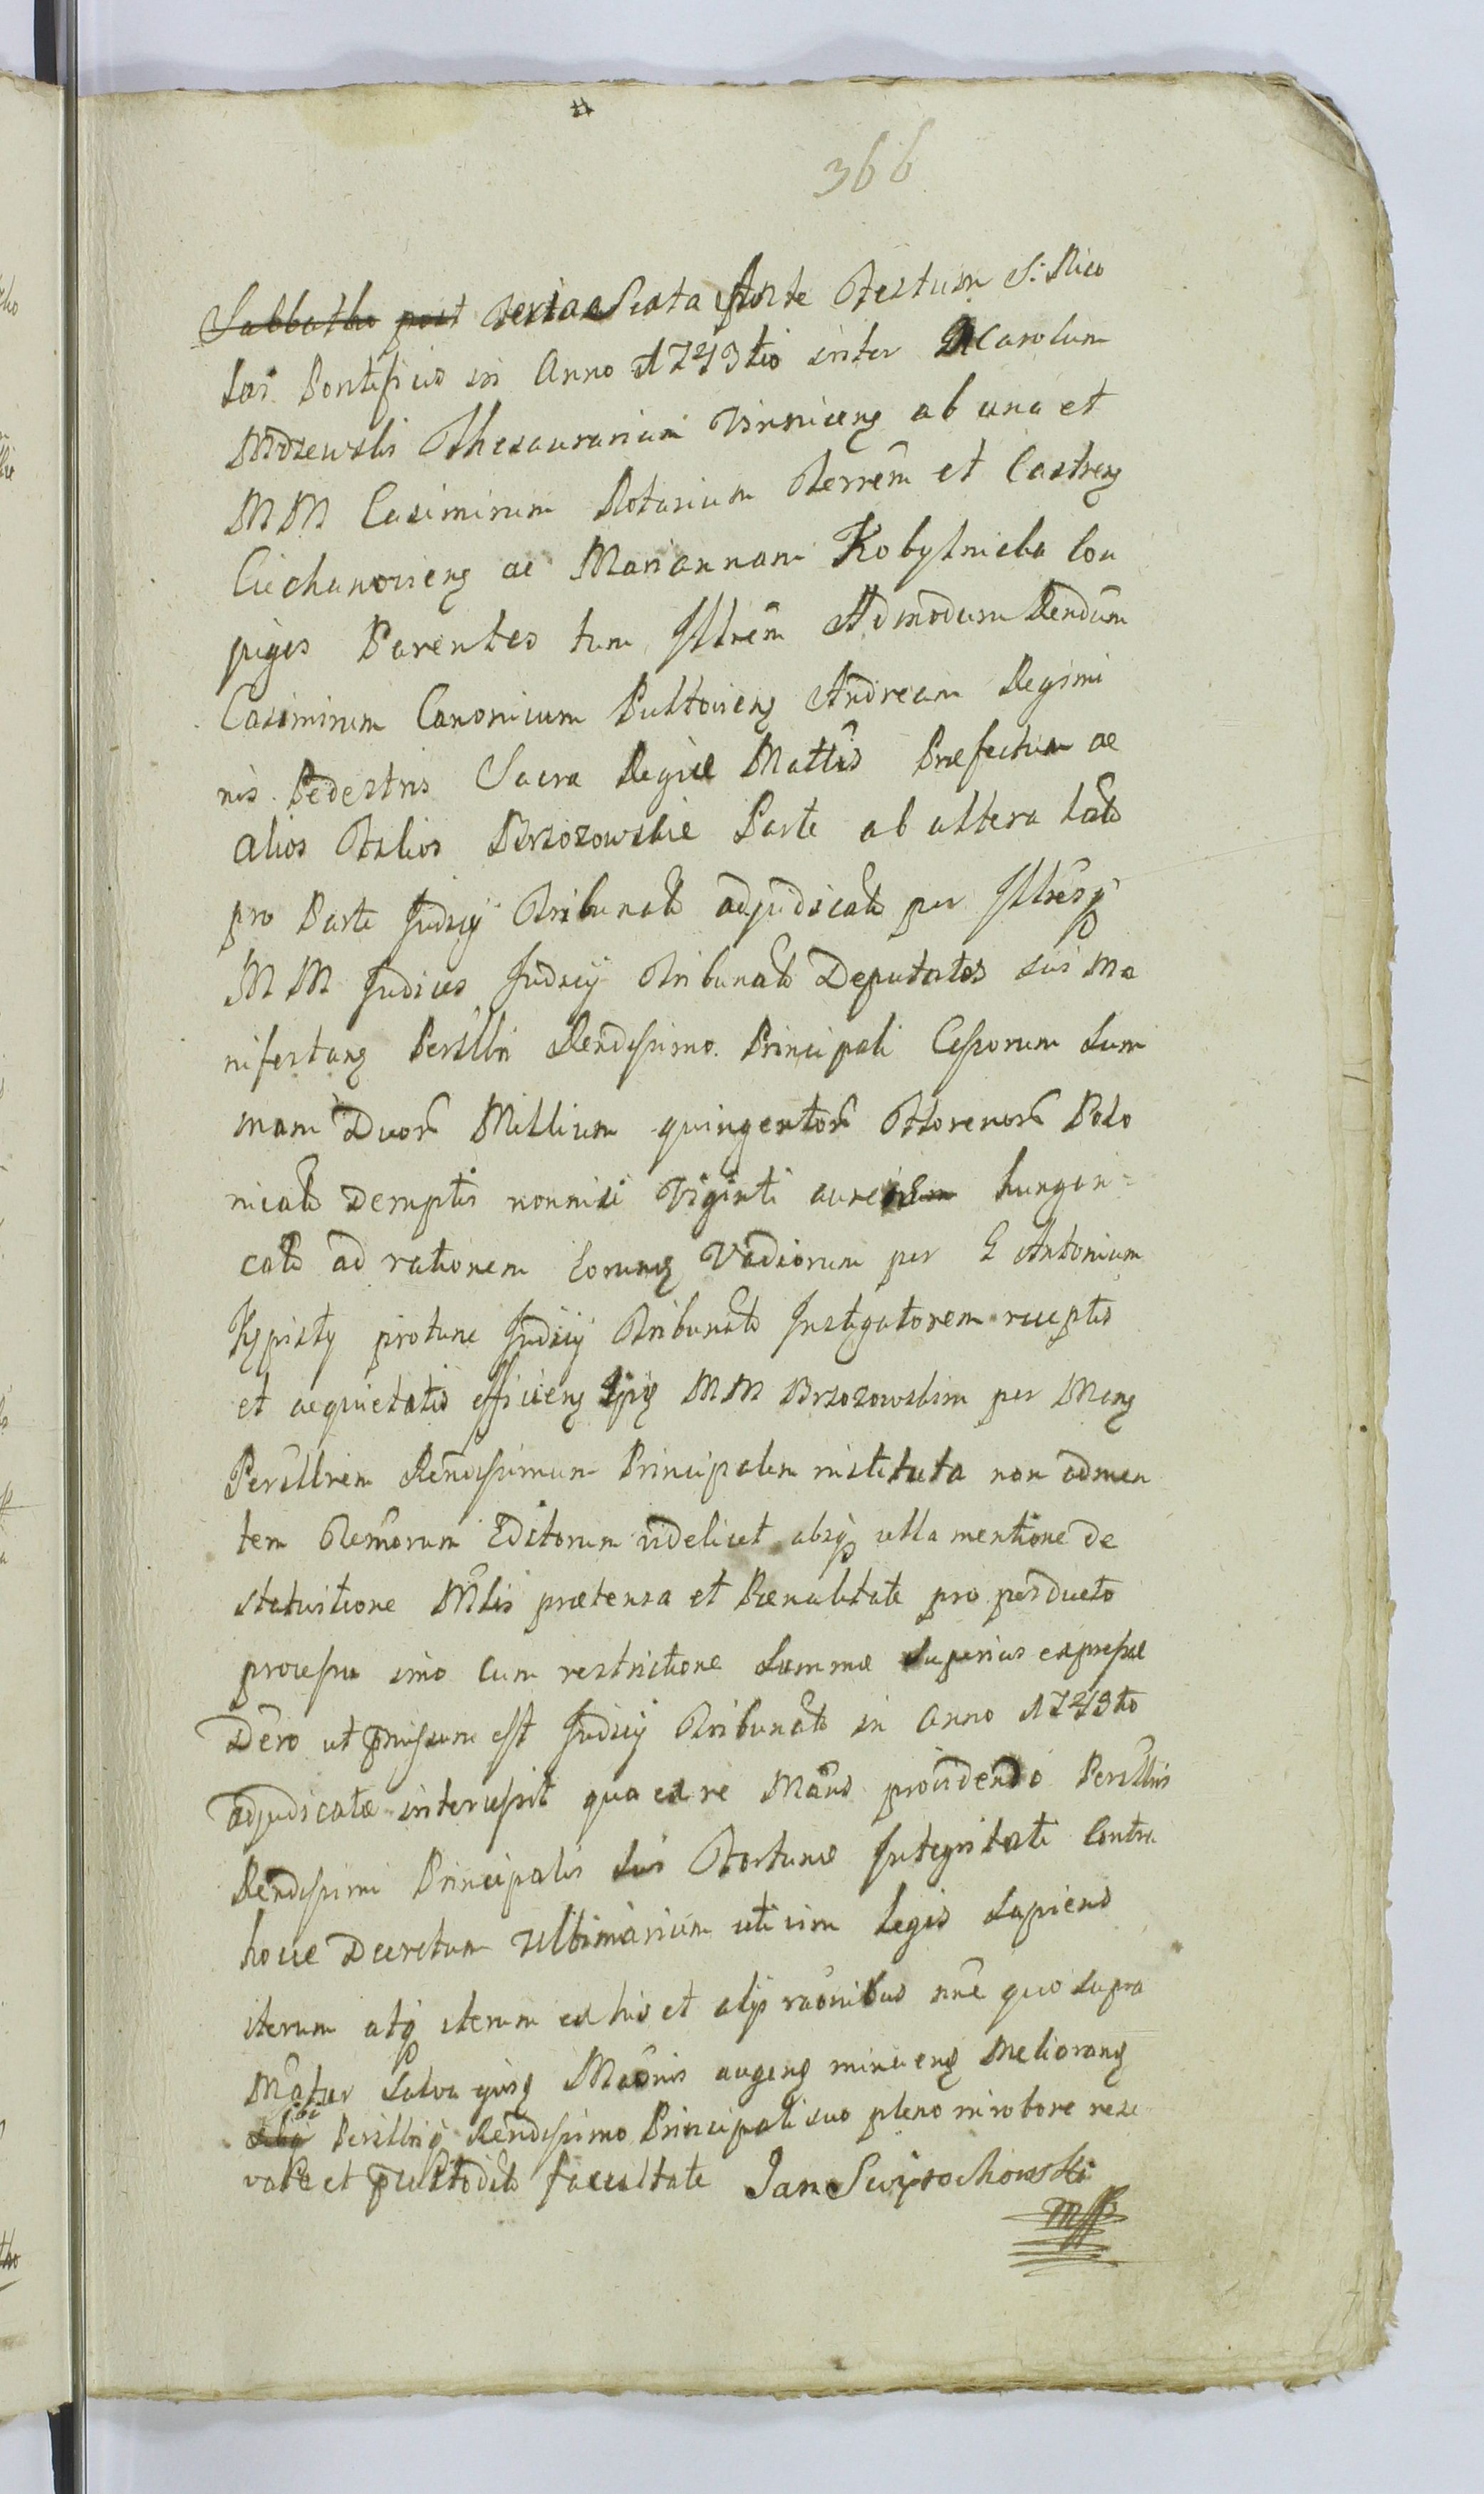 366
Sabbatho post Sexta Ante Festum S: Nico
lai Pontificis in Anno 1743tio inter M Carolum
Mdzewski Thesaurarium Vinniceng ab una et
MM Casimirum Notarium Terrem et Castreng
Ciechanovieng ac Mariannam Kobylnicka Con
juges Parentes tum Illrem Admodum Rendum
Casimirum Canonicum Pultovieng Andream Regimi
nis Pedestris Sacra Regiæ Mattis Præfectum ac
alios Filios Brzozowskie Parte ab altera lato
pro Parte Judicij Tribunals adjudicato per Illresq
MM Judices Judicij Tribunals Deputatos sui Ma
nifestang Perillri Rendissimo Principali Cessorum Sum
mam Duor Millium quingentor Florenor Polo
nicals Demptis nonnisi Viginti aureis hungari=
cals ad rationem Eorumq Vadiorum per G Antonium
protunc Judicij Tribunals Instigatorem receptis
et aequietatis efficieng MM Brzozowskim per Mang
Perillrem Rendissimum Principalem instituta non admen
tem Remorum Editorum videlicet absq ulla mentione de
statuitione Mlis prætensa et Pænalitate pro perducto
processu imo Cum restrictione Summæ Superius expressæ
Dcro ut præmissum est Judicij Tribunals in Anno 1743tio
adjudicatæ intercessit qua ex re Mans providendo Perillris
Rendissimi Principalis Sui Fortunæ Integritati Contra
hocce Decretum Ultimarium uti vim legis Sapiens
iterum atq iterum ex his et alijs raonibus nne quo supra
Matur Salva ejusq Maonis augeng minueng Meliorang
sibi Perillriq Rendissimo Principali suo pleno in robore rese
vata et præcustodita facultate Jan Swiętochowski
mpp